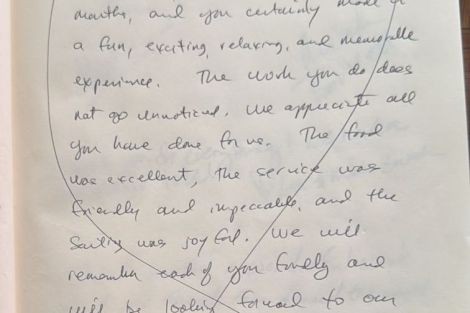 months, and you certainly made it
a fun, exciting, relaxing, and memorable
experience. The work you do does
not go unnoticed. We appreciate all
you have done for us. The food
was excellent, the service was
friendly and impeccable, and the
sailing was joyful. We will
remember each of you fondly and
will be looking forward to our